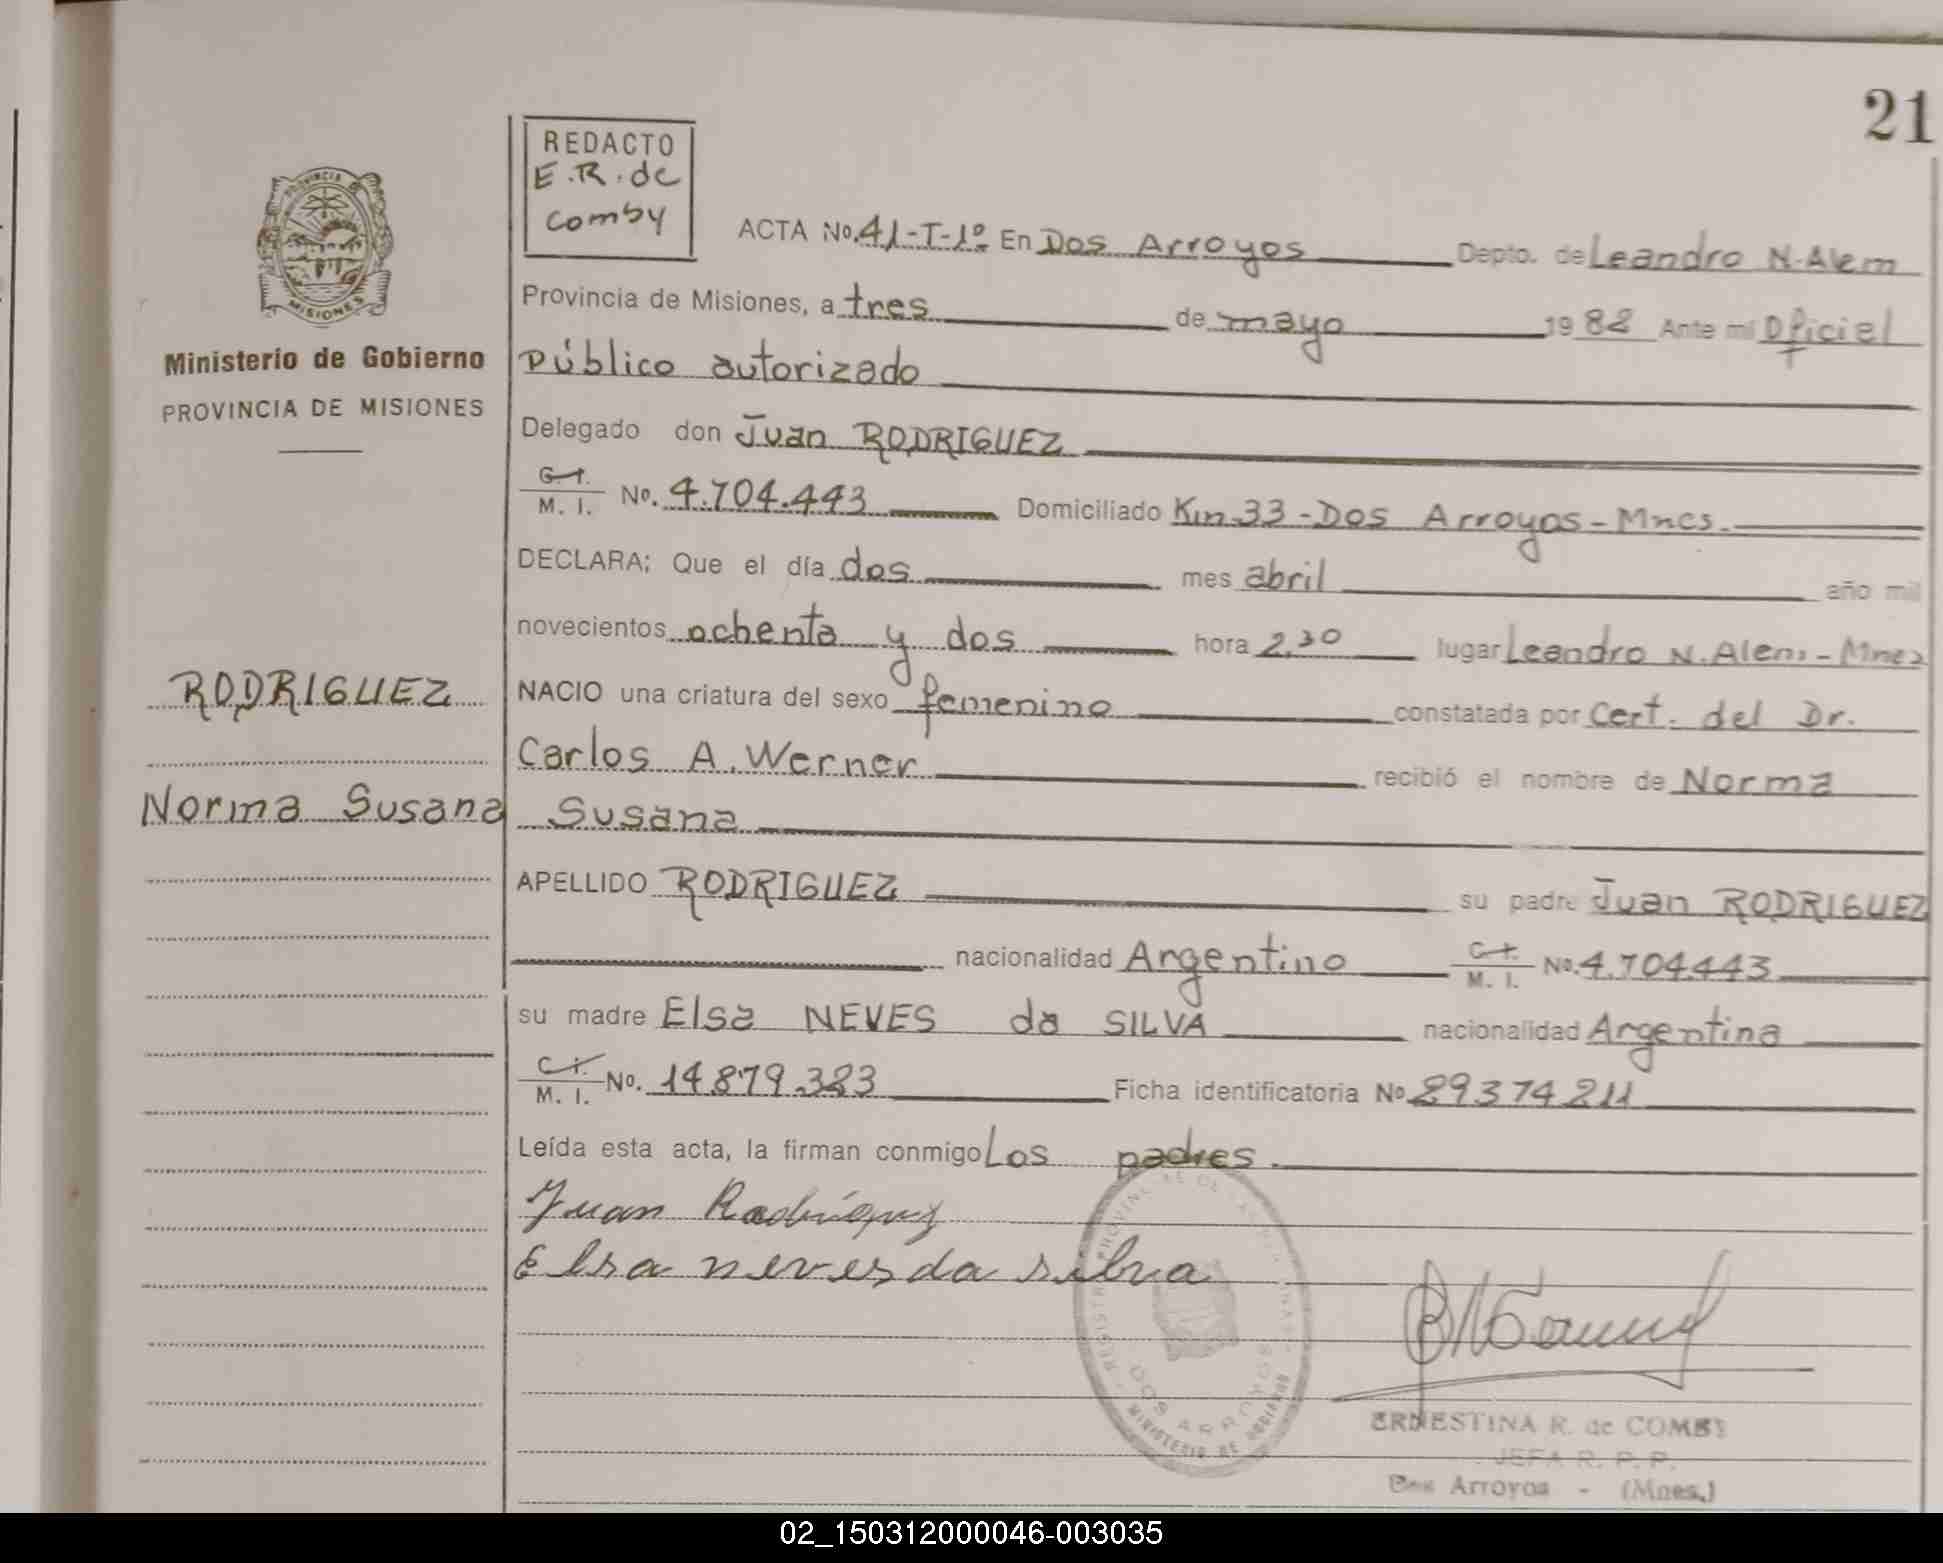 21
REDACTO
E.R. de
Comby
PROVINCIA DE
MISIONES
Ministerio de Gobierno
PROVINCIA DE MISIONES
RODRIGUEZ
Norma Susana
ACTA No. 41-T-1º En Dos Arroyos Depto. de Leandro N. Alem
Provincia de Misiones, a tres de mayo 1982 Ante mí Oficial
Público autorizado
Delegado don Juan RODRIGUEZ
C. I. M. I. No. 4.704.443 Domiciliado Km 33 - Dos Arroyos - Mnes.
DECLARA; Que el día dos mes abril año mil
novecientos ochenta y dos hora 2,30 lugar Leandro N. Alem - Mnes
NACIO una criatura del sexo femenino constatada por Cert. del Dr.
Carlos A. Werner recibió el nombre de Norma
Susana
APELLIDO RODRIGUEZ su padre Juan RODRIGUEZ
nacionalidad Argentino C. I. M. I. No. 4.704.443
su madre Elsa NEVES da SILVA nacionalidad Argentina
C. I. M. I. No. 14.879.323 Ficha identificatoria No 29374211
Leída esta acta, la firman conmigo Los padres.
Juan Rodríguez
Elsa neves da silva
DOS ARROYOS
MINISTERIO DE GOBIERNO
ERNESTINA R. de COMBY
JEFA R. P. P.
Dos Arroyos - (Mnes.)
02_150312000046-003035